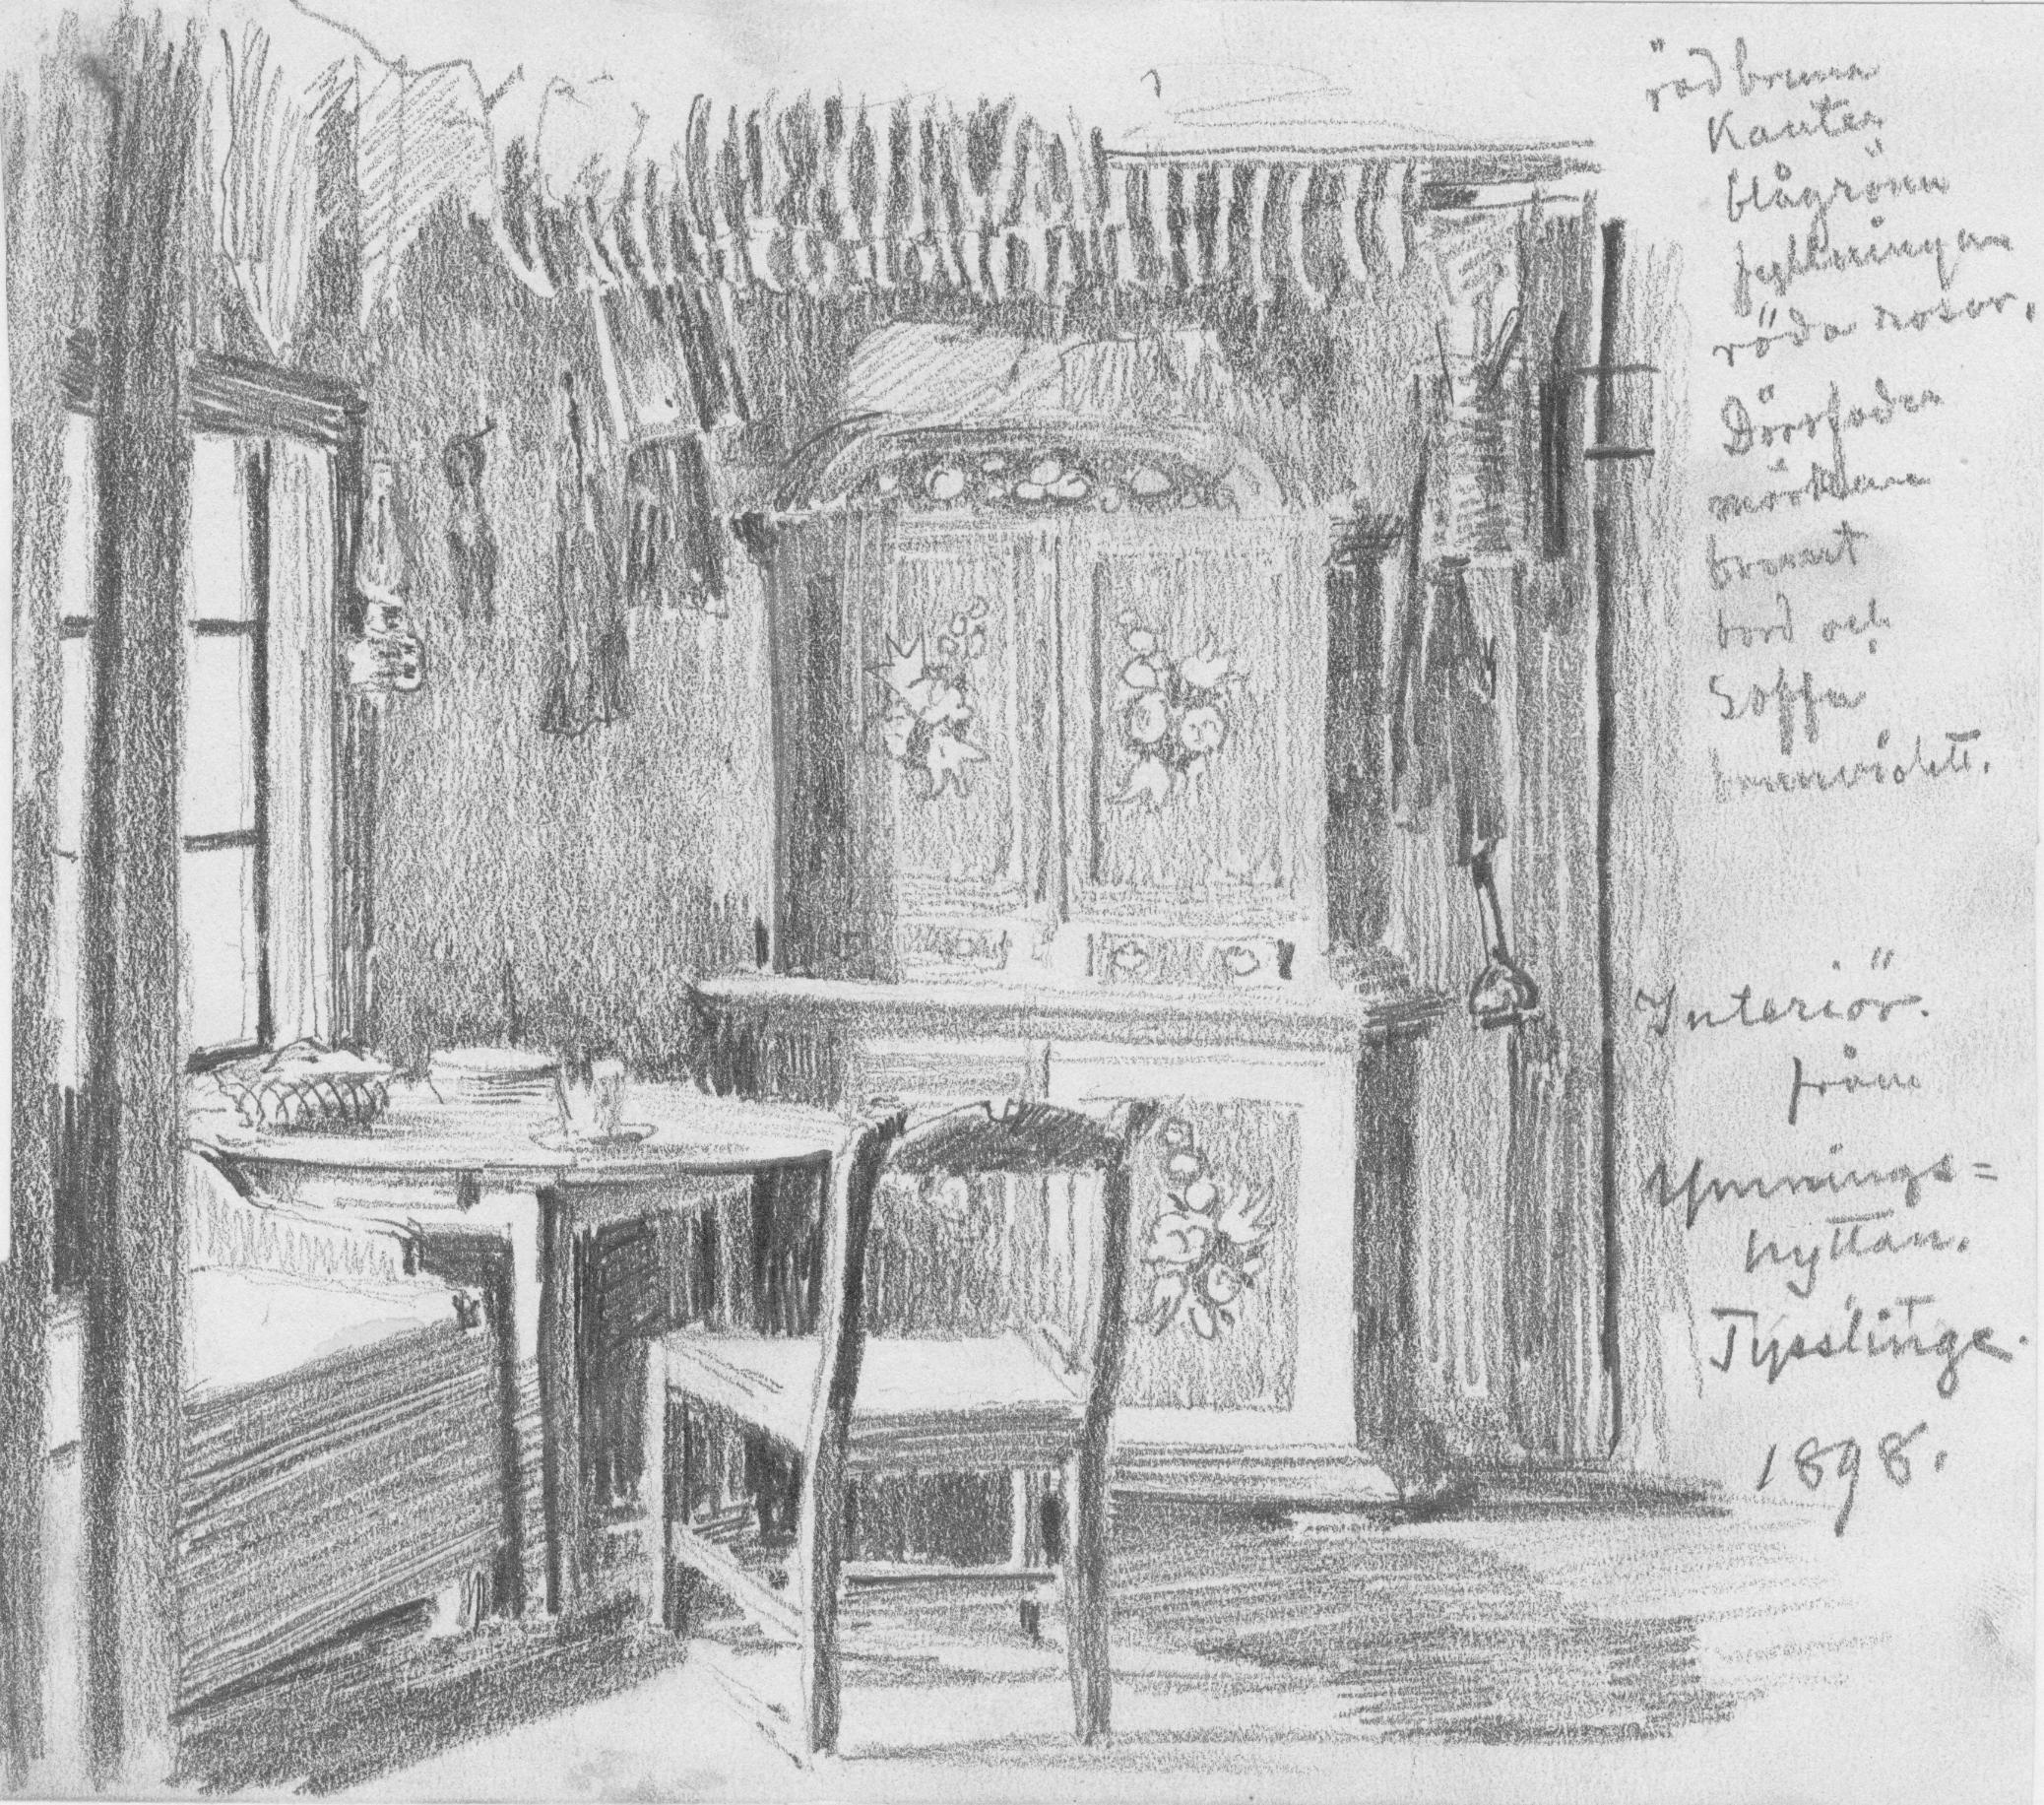 rödbruna
Kanter
blågröna
fyllningar
röda rosor.
Dörrfoder
mörkare
brunt
bord och
Soffa
brunviolett.
Interiör.
från
Ymnings=
hyttan.
Tysslinge.
1898.